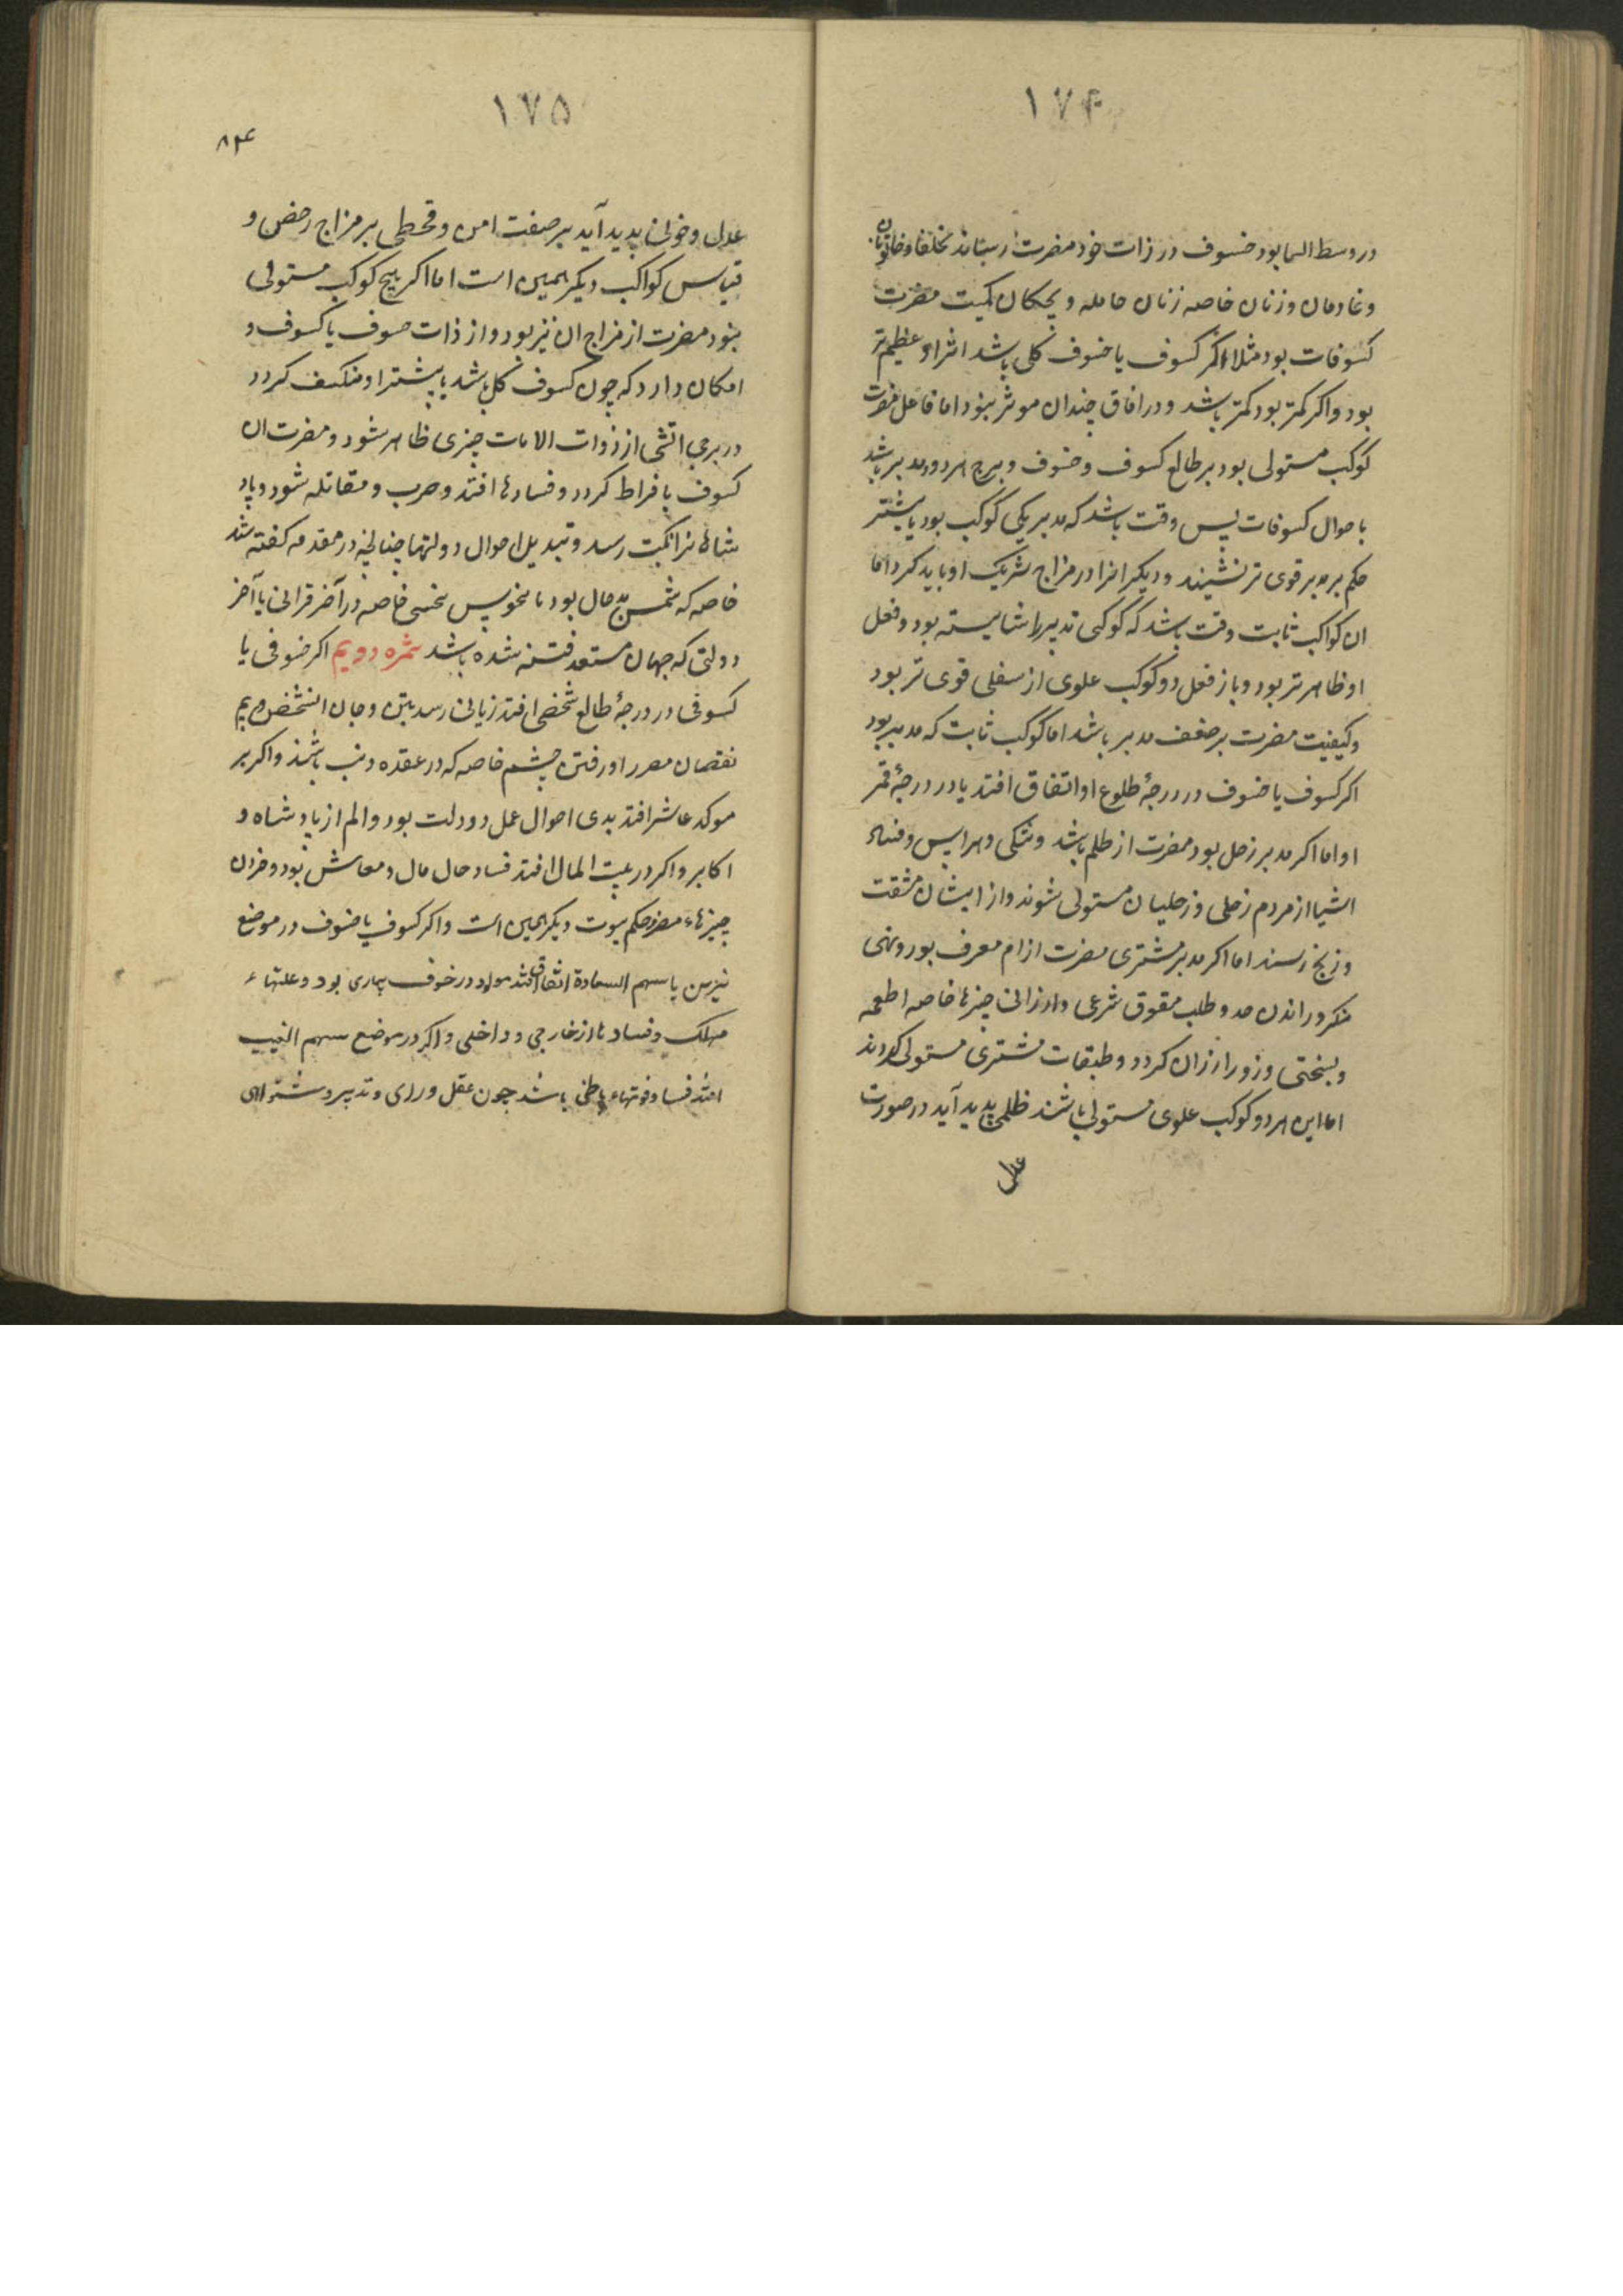 ۱۷۴
در وسط السما بود خسوف در ذات خود مضرت رساند بخلفا و خاتونان
و خادمان و زنان خاصه زنان حامله و بچکان کمیت مضرت
کسوفات بود مثلا اکر کسوف یا خسوف کلی باشد اثر او عظیم تر
بود و اکر کمتر بود کمتر باشد و در افاق چندان موثر نبود اما فاعل مضرت
کوکب مستولی بود بر طالع کسوف و خسوف و برج هر دو مدبر باشد
باحوال کسوفات پس وقت باشد که مدبر یکی کوکب بود یا بیشتر
حکم بر مدبر قوی تر نشینند و دیکر انرا در مزاج شریک او باید کرد اما
ان کواکب ثابت وقت باشد که کوکبی تدبیر را شایسته بود و فعل
او ظاهر تر بود و باز فعل دو کوکب علوی از سفلی قوی تر بود
و کیفیت مضرت بر ضعف مدبر باشد اما کوکب ثابت که مدبر بود
اکر کسوف یا خسوف در درجهٔ طلوع او اتفاق افتد یا در درجهٔ قمر
او اما اکر مدبر زحل بود مضرت از ظلم باشد و تنکی و هراس و فناء
اشیا از مردم زحلی و زحلیان مستولی شوند و از ایشان مشقت
و رنج رسند اما اکر مدبر مشتری مضرت از امر معرف بود و نهی
منکر و راندن حد و طلب حقوق شرعی و ارزانی چیزها خاصه اطعمه
و زور ارزان کردد و طبقات مشتری مستولی کردند
اما این هر دو کوکب علوی مستولی باشند ظلمی پدید آید در صورت
عدل
۱۷۵
۸۴
عدل و خوفی پدید آید بر صفت امن و قحطی بر مزاج رخص و
قیاس کواکب دیکر همین است اما اکر هیچ کوکب مستولی
نبود مضرت از مزاج ان نیز بود و از ذات خسوف یا کسوف و
امکان دارد که چون کسوف کلی باشد یا بیشتر او منکسف کردد
در برجی اتشی از ذوات الاذناب چیزی ظاهر شود و مضرت ان
کسوف بافراط کردد و فسادها افتد و حرب و مقاتله شود و پاد
شاهانرا نکبت رسد و تبدیل احوال دولتها چنانچه در مقدمه کفته شد
خاصه که شمس بد حال بود با نحوس نحسی خاصه در آخر قرانی یا آخر
دولتی که جهان مستعد فتنه شده باشد ثمره دویم اکر خسوفی یا
کسوفی در درجهٔ طالع شخصی افتد زیانی رسد بتن و جان انشخص و بیم
نقصان مضرر او رفتن چشم خاصه که در عقده ذنب باشند و اکر بر
موکد عاشر افتد بدی احوال عمل و دولت بود و الم از پادشاه و
اکابر و اکر در بیت المال افتد فساد حال مال و معاش بود و خزان
چیزهاء مضر و حکم بیوت دیکر همین است و اکر کسوف یا خسوف در موضع
نیرین یا سهم السعادة اتفاق افتد مولود در خوف بیماری بود و علتهاء
مهلک و فسادها از خارجی و داخلی و اکر در موضع سهم الغیب
افتد فساد قوتهاء باطنی باشد چون عقل و رای و تدبیر و